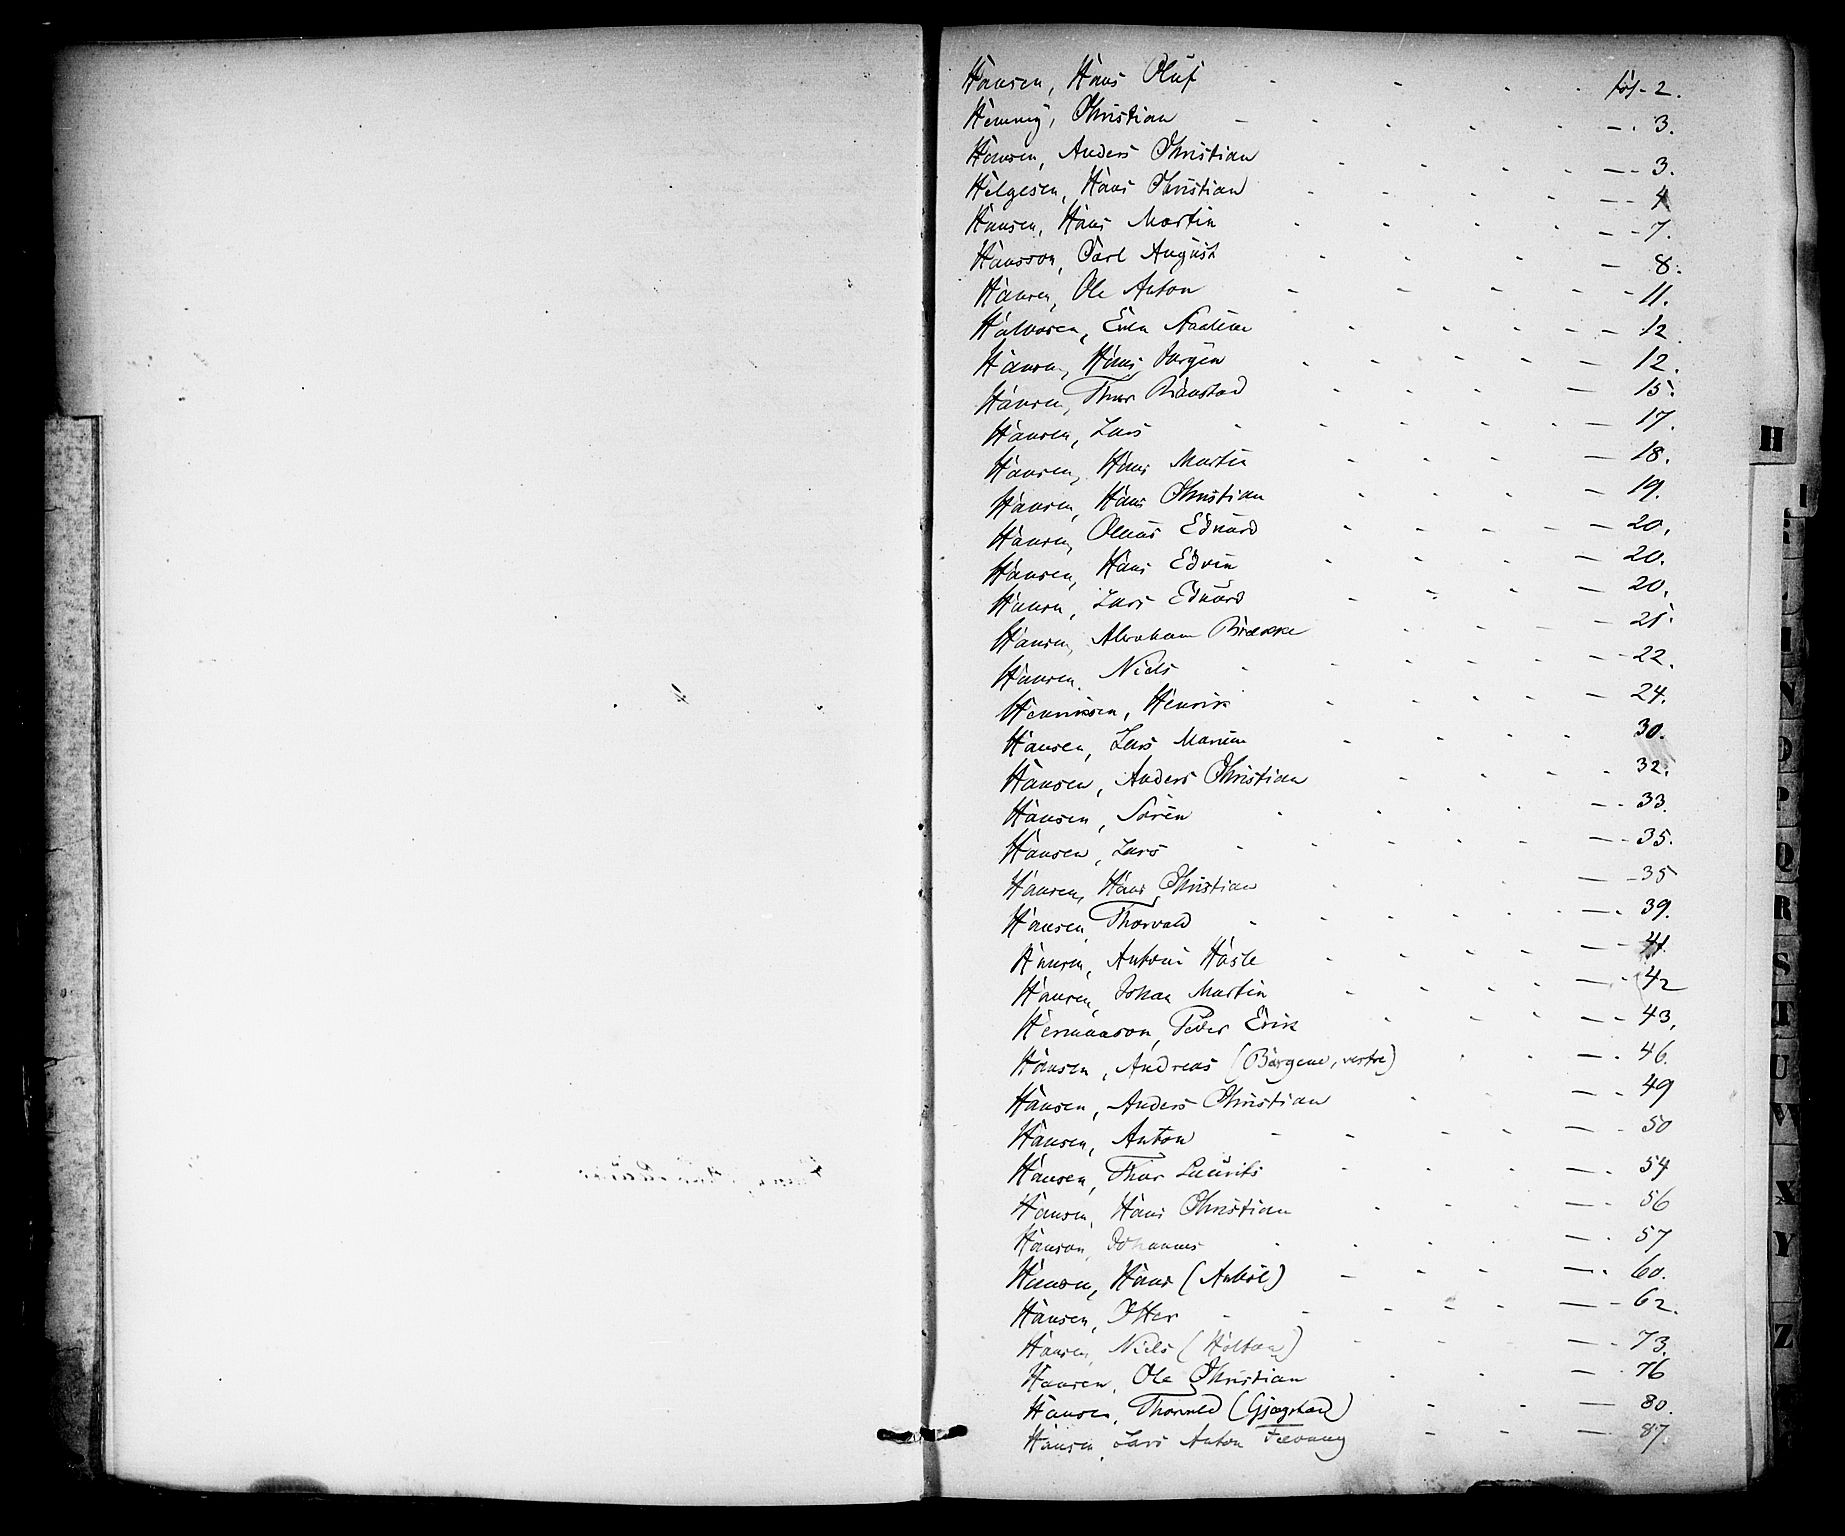 Hansen, Hans Oluf - - - - fol. 2.
Hennig, Christian - - - - - — . 3.
Hansen, Anders Christian - - - - — - 3.
Helgesen, Hans Christian - - - - — - 4
Hansen, Hans Martin - - - - — - 7.
Hansson, Carl August - - - — 8.
Hansen, Ole Anton - - - - - 11.
Halvorsen, Even - - - - — 12.
Hansen, Hans Jørgen - - - - — 12.
Hansen, Thor Rånestad - - - - — 15.
Hansen, Lars - - - - - — 17.
Hansen, Hans Martin - - - — 18.
Hansen, Hans Christian - - - - — 19.
Hansen, Olaus Edvard - - - - — 20.
Hansen, Hans Edvin - - - - — 20.
Hansen, Lars Edvard - - - - — 20.
Hansen, Abraham Brække - - - — 21.
Hansen, Niels - - - - - — 22.
Henriksen, Henrik - - - - — 24.
Hansen, Lars - - - - 30.
Hansen, Anders Christian - - - - 32.
Hansen, Søren - - - - — - 33.
Hansen, Lars - - - - - — - 35.
Hansen, Hans Christian - - - — - 35
Hansen, Thorvald - - - - - — . 39.
Hansen, Anton Hasle - - - - — - 41.
Hansen, Johan Martin - - - - — - 42
Hermansson, Peder Erik - - - — - 43.
Hansen, Andreas (Bårgene, vestre) - - — . 46.
Hansen, Anders Christian - - — - 49
Hansen, Anton - - - - — - 50
Hansen, Thor Laurits - - - — . 54
Hansen, Hans Christian - - - — . 56
Hansen, Johannes - - - - — . 57
Hansen, Hans (Askøl) - - - — . 60.
Hansen, Otter - - - - — - 62.
Hansen, Niels (Holtan) - - - — - 73.
Hansen, Ole Christian - - - — 76
Hansen, Thorvald (Gjøgstad) - - — 80.
Hansen, Lars Anton Fævang - - — 87.
H
I
N
O
P
Q
R
S
T
U
W
X
Y
Z